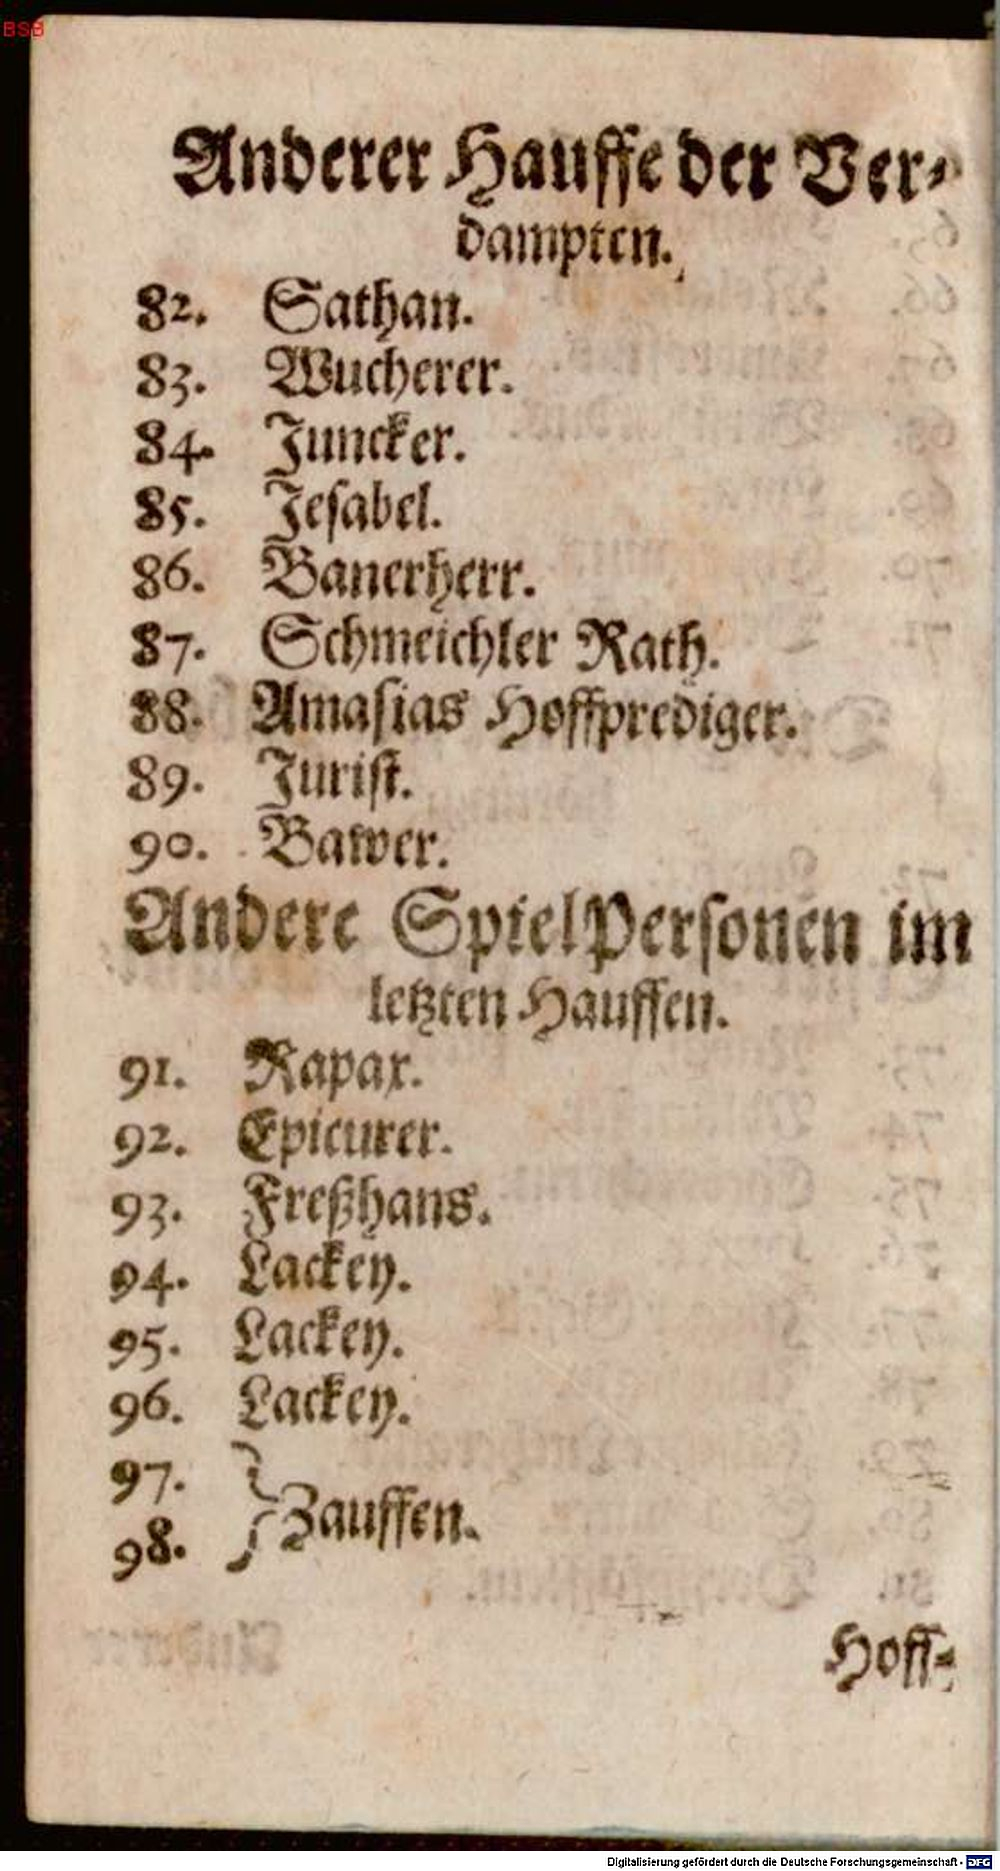 BSB
Anderer Hauffe der Ver-
dampten.
82. Sathan.
83. Wucherer.
84. Juncker.
85. Jesabel.
86. Banerherr.
87. Schmeichler Rath.
88. Amasias Hoffprediger.
89. Jurist.
90. Bawer.
Andere SpielPersonen im
letzten Hauffen.
91. Rapax.
92. Epicurer.
93. Freßhans.
94. Lackey.
95. Lackey.
96. Lackey.
97.
98. } Zauffen.
Hoff-
Digitalisierung gefördert durch die Deutsche Forschungsgemeinschaft - DFG